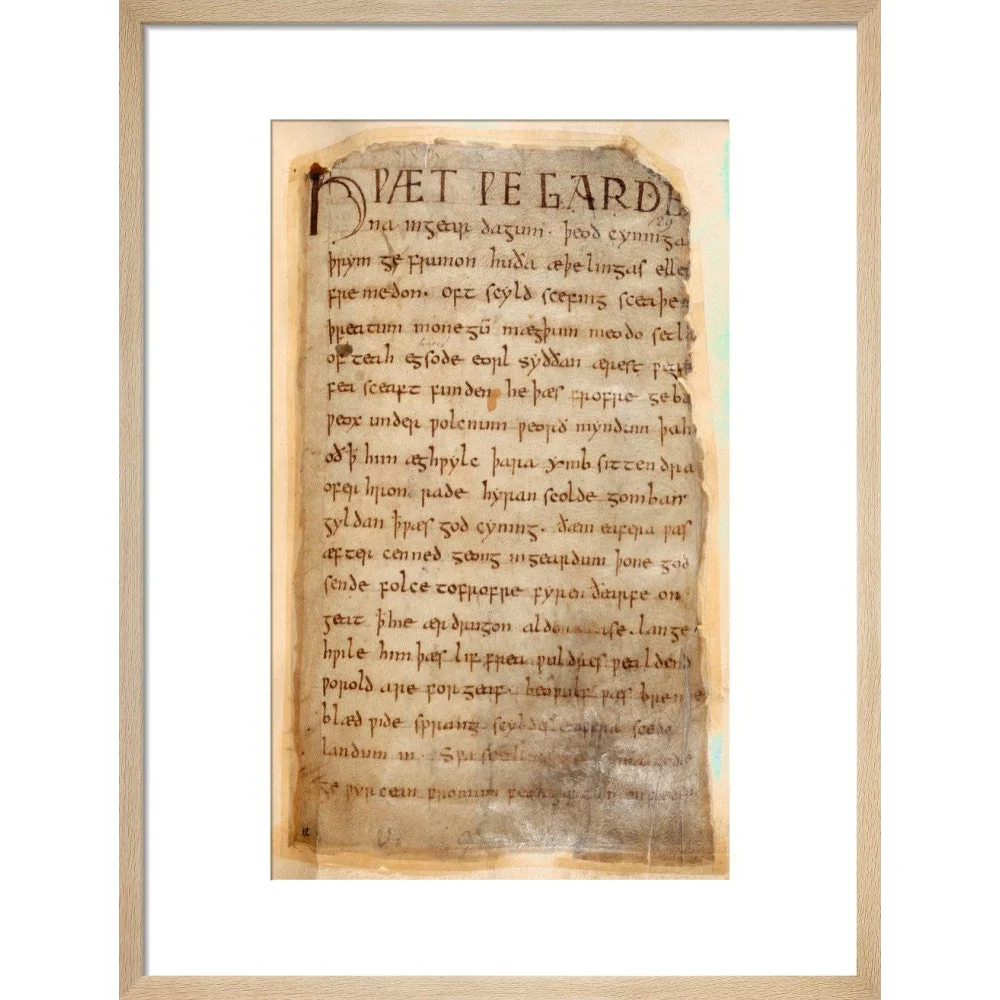 HǷÆT ǷE GARDE
na ingear dagum. þeod cyninga
þrym ge frunon huða æþelingas elle
fremedon. oft scyld scefing sceaþe
þreatum monegū mægþum meodo setla
of teah egsode eorl syððan ærest ƿear
fea sceaft funden he þæs frofre geba
ƿeox under ƿolcnum ƿeorð myndum þah
oð ꝥ him æghƿylc þara ymb sittendra
ofer hron rade hyran scolde gomban
gyldan ꝥ ƿæs god cyning. ðæm eafera ƿæs
æfter cenned geong in geardum þone god
sende folce tofrofre fyren ðearfe on
geat ꝥ hie ær drugon aldor ase. lange
hƿile him þæs lif frea ƿuldres ƿealdend
ƿorold are forgeaf. beoƿulf ƿæs breme
blæd ƿide sprang scyldes eafera scede
landum in. Sƿa
ge ƿyrcean fromum